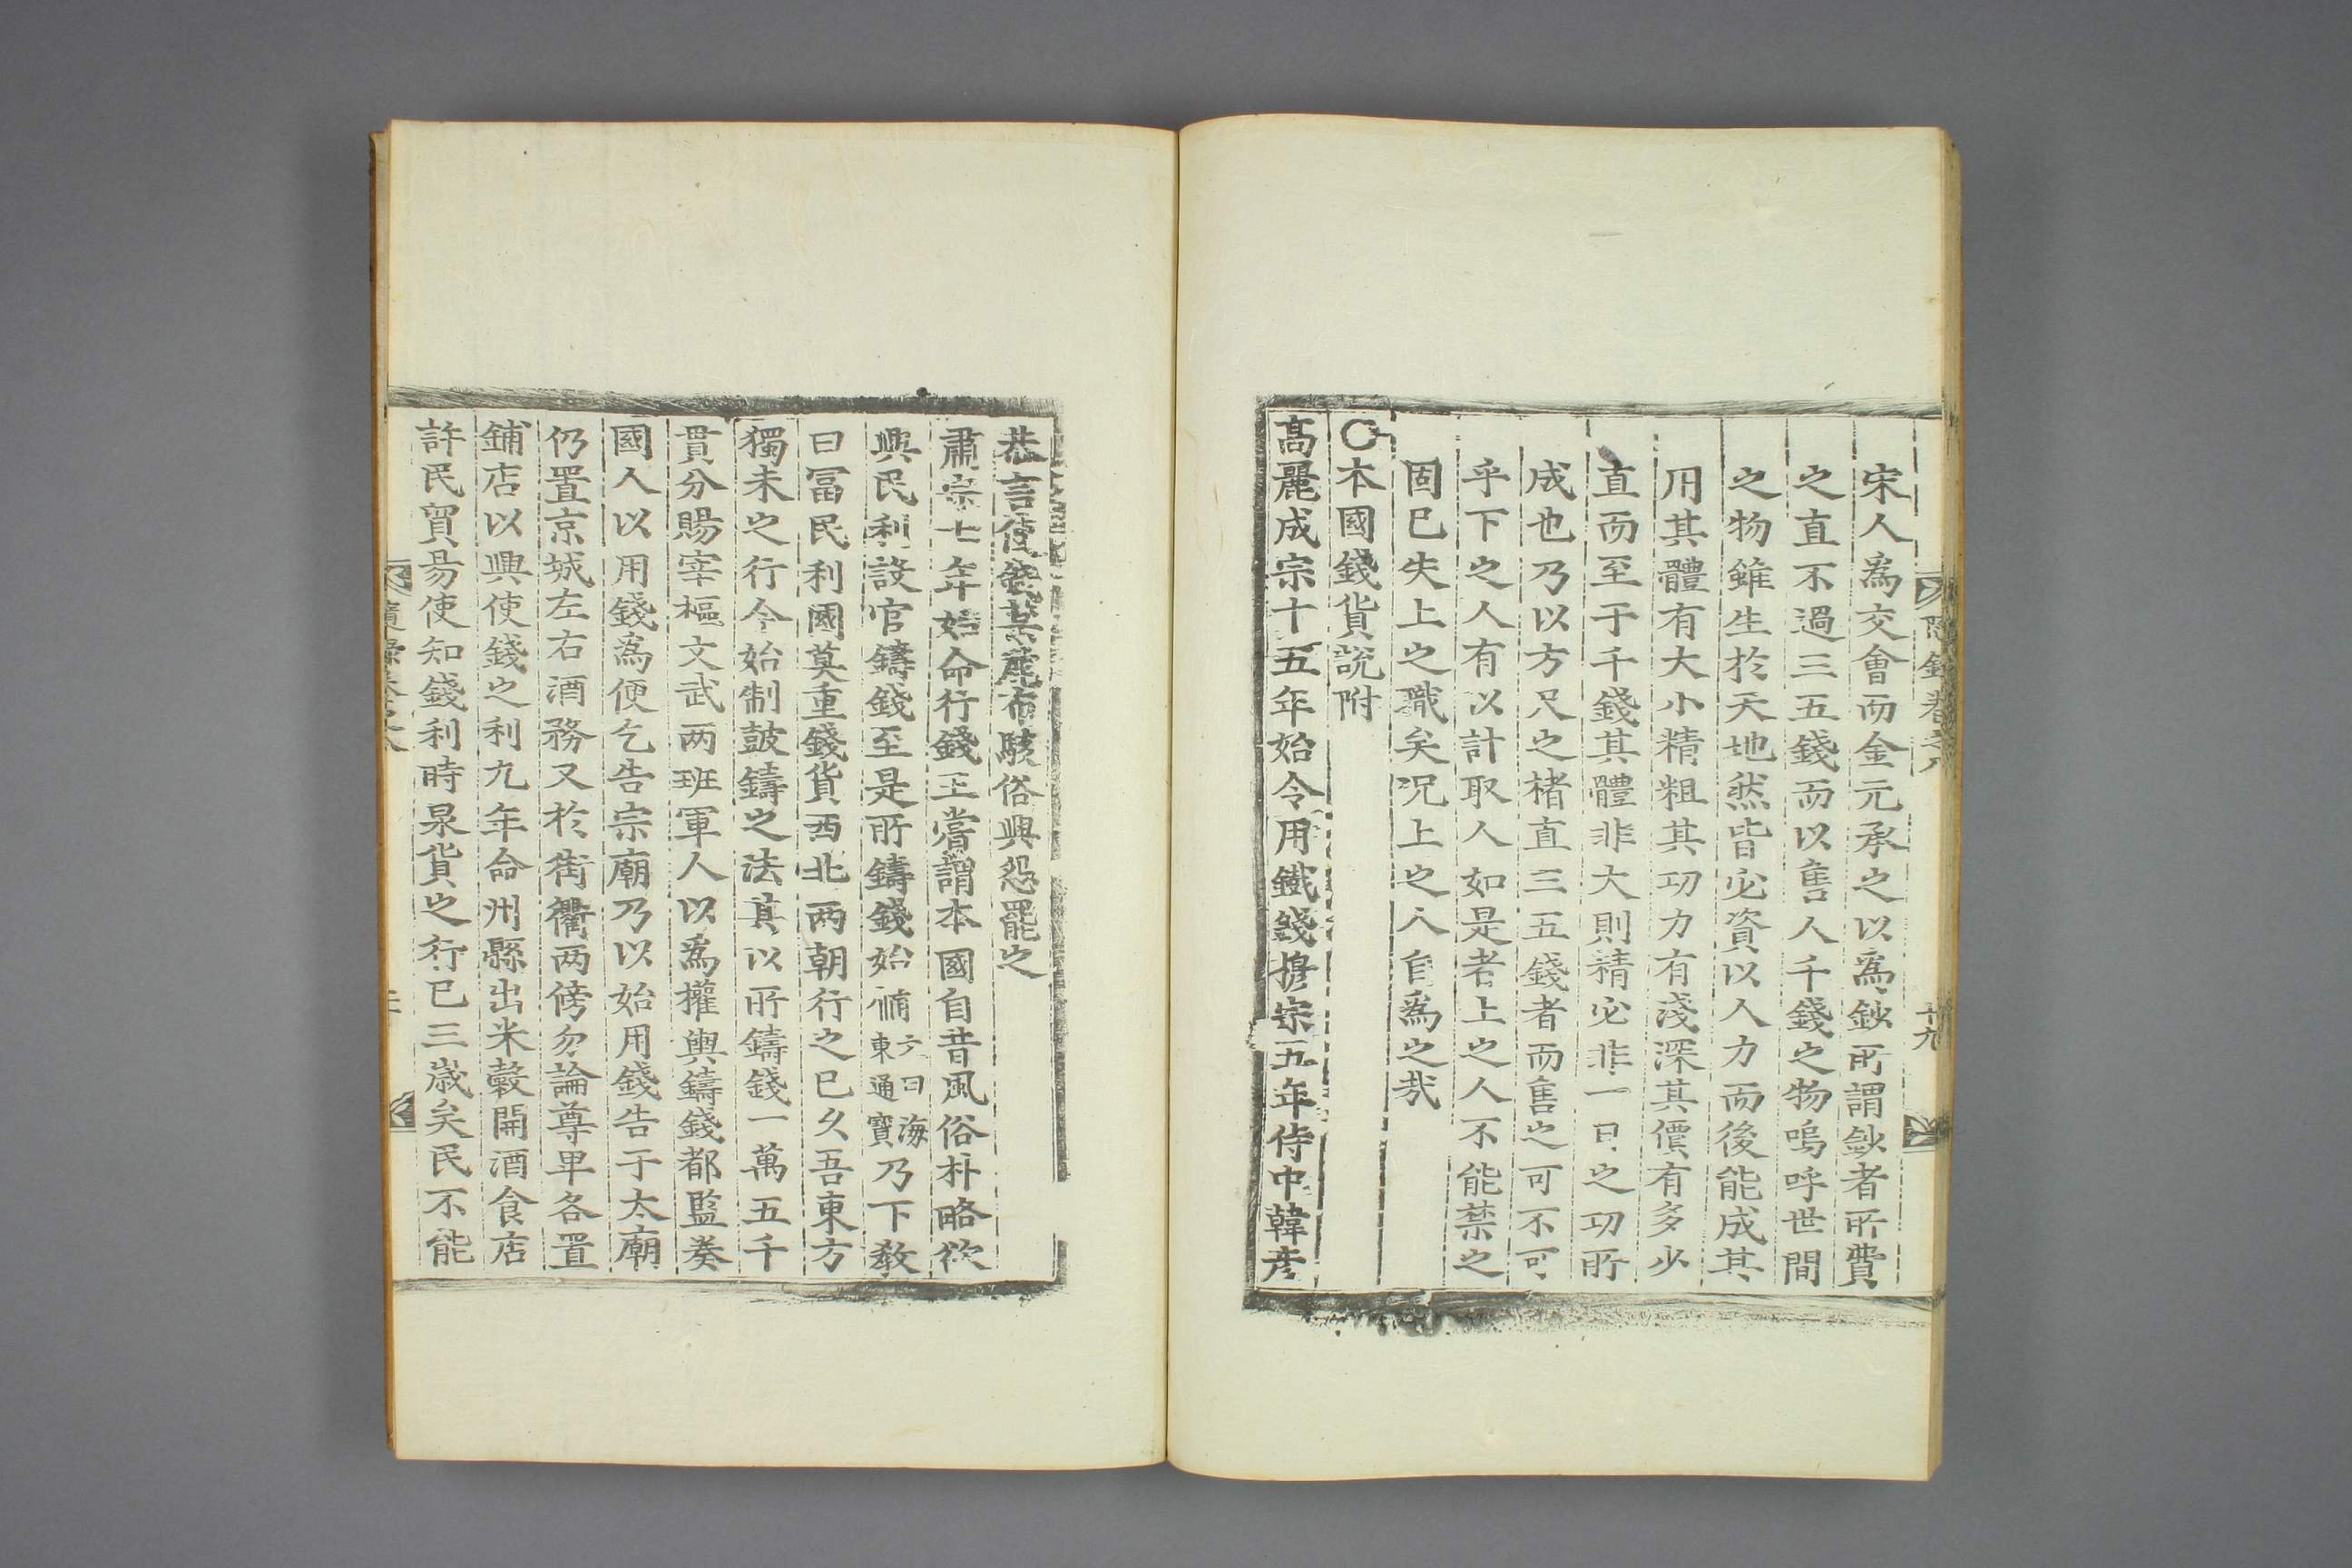 宋人爲交會而金元承之以爲鈔所謂鈔者所費
之直不過三五錢而以售人千錢之物嗚呼世間
之物雖生於天地然皆必資以人力而後能成其
用其體有大小精粗其功力有淺深其價有多少
直而至于千錢其體非大則精必非一日之功所
成也乃以方尺之楮直三五錢者而售之可不可
乎下之人有以計取人如是者上之人不能禁之
固已失上之職矣況上之人自爲之哉
○本國錢貨說附
高麗成宗十五年始令用鐵錢穆宗五年侍中韓彦
恭言使錢禁麁布駭俗興怨罷之
肅宗七年始命行錢王嘗謂本國自昔風俗朴略欲
興民利設官鑄錢至是所鑄錢始備文曰海東通寶乃下敎
曰冨民利國莫重錢貨西北兩朝行之已久吾東方
獨未之行今始制鼓鑄之法其以所鑄錢一萬五千
貫分賜宰樞文武两班軍人以爲權輿鑄錢都監奏
國人以用錢爲便乞告宗廟乃以始用錢告于太廟
仍置京城左右酒務又於街衢两傍勿論尊卑各置
鋪店以興使錢之利九年命州縣出米穀開酒食店
許民貿易使知錢利時泉貨之行已三歲矣民不能